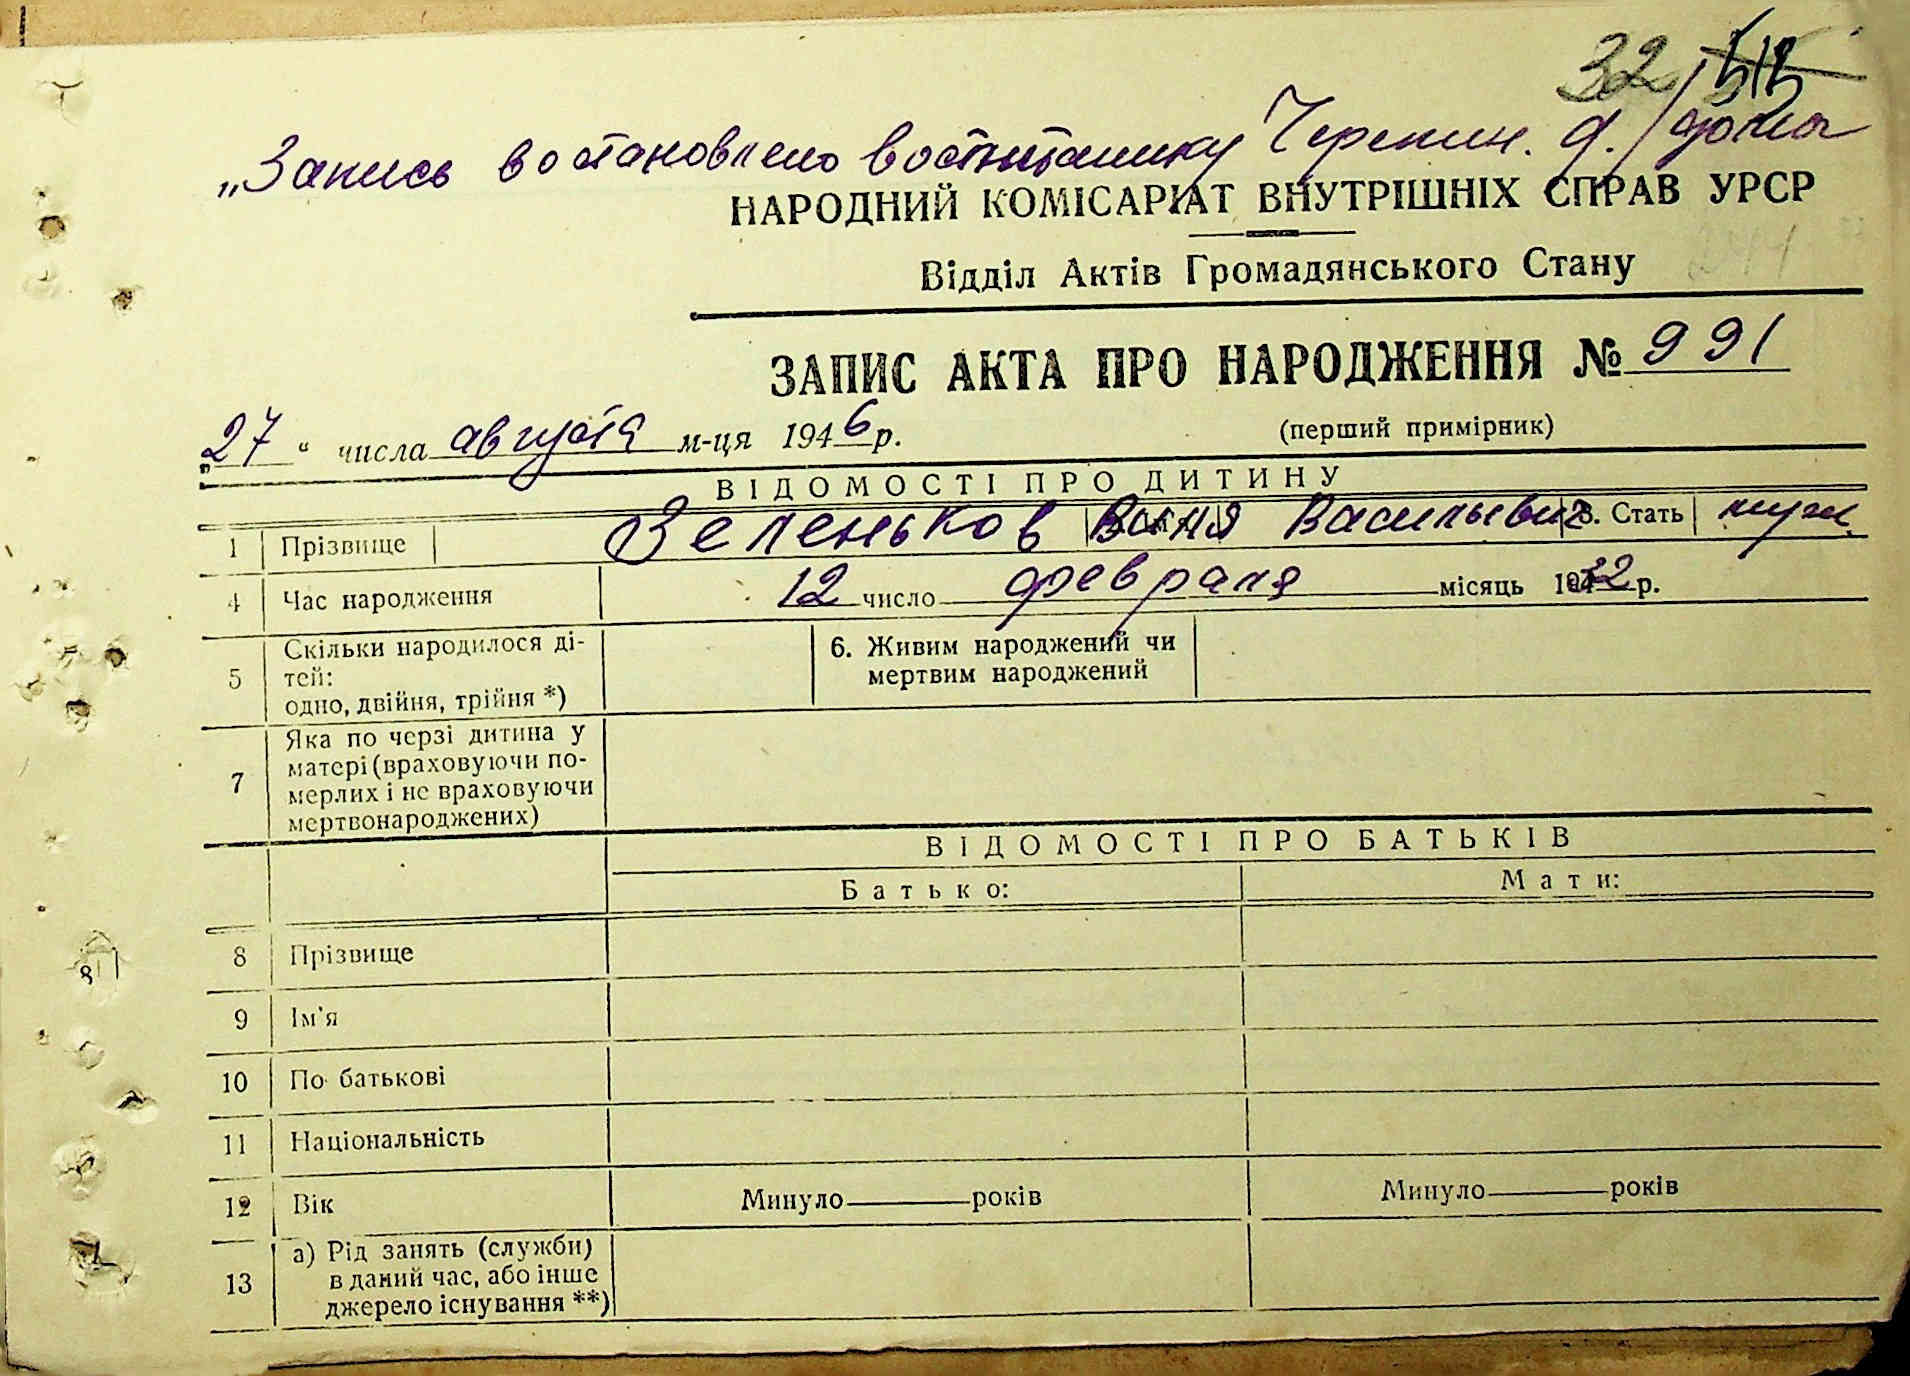 32
„Запись востановлено воспитанику Черепин. д./дома
НАРОДНИЙ КОМІСАРІАТ ВНУТРІШНІХ СПРАВ УРСР
Відділ Актів Громадянського Стану
ЗАПИС АКТА ПРО НАРОДЖЕННЯ № 991
„27“ числа августа м-ця 1946 р.
(перший примірник)
ВІДОМОСТІ ПРО ДИТИНУ
1 Прізвище Зеленьков Ваня Васильевич 3. Стать муж.
4 Час народження 12 число февраля місяць 1932 р.
5 Скільки народилося ді-
тей:
одно, двійня, трійня *)
6. Живим народжений чи
мертвим народжений
7 Яка по черзі дитина у
матері (враховуючи по-
мерлих і не враховуючи
мертвонароджених)
ВІДОМОСТІ ПРО БАТЬКІВ
Батько: Мати:
8 Прізвище
9 Ім'я
10 По батькові
11 Національність
12 Вік Минуло років Минуло років
13 а) Рід занять (служби)
в даний час, або інше
джерело існування **)